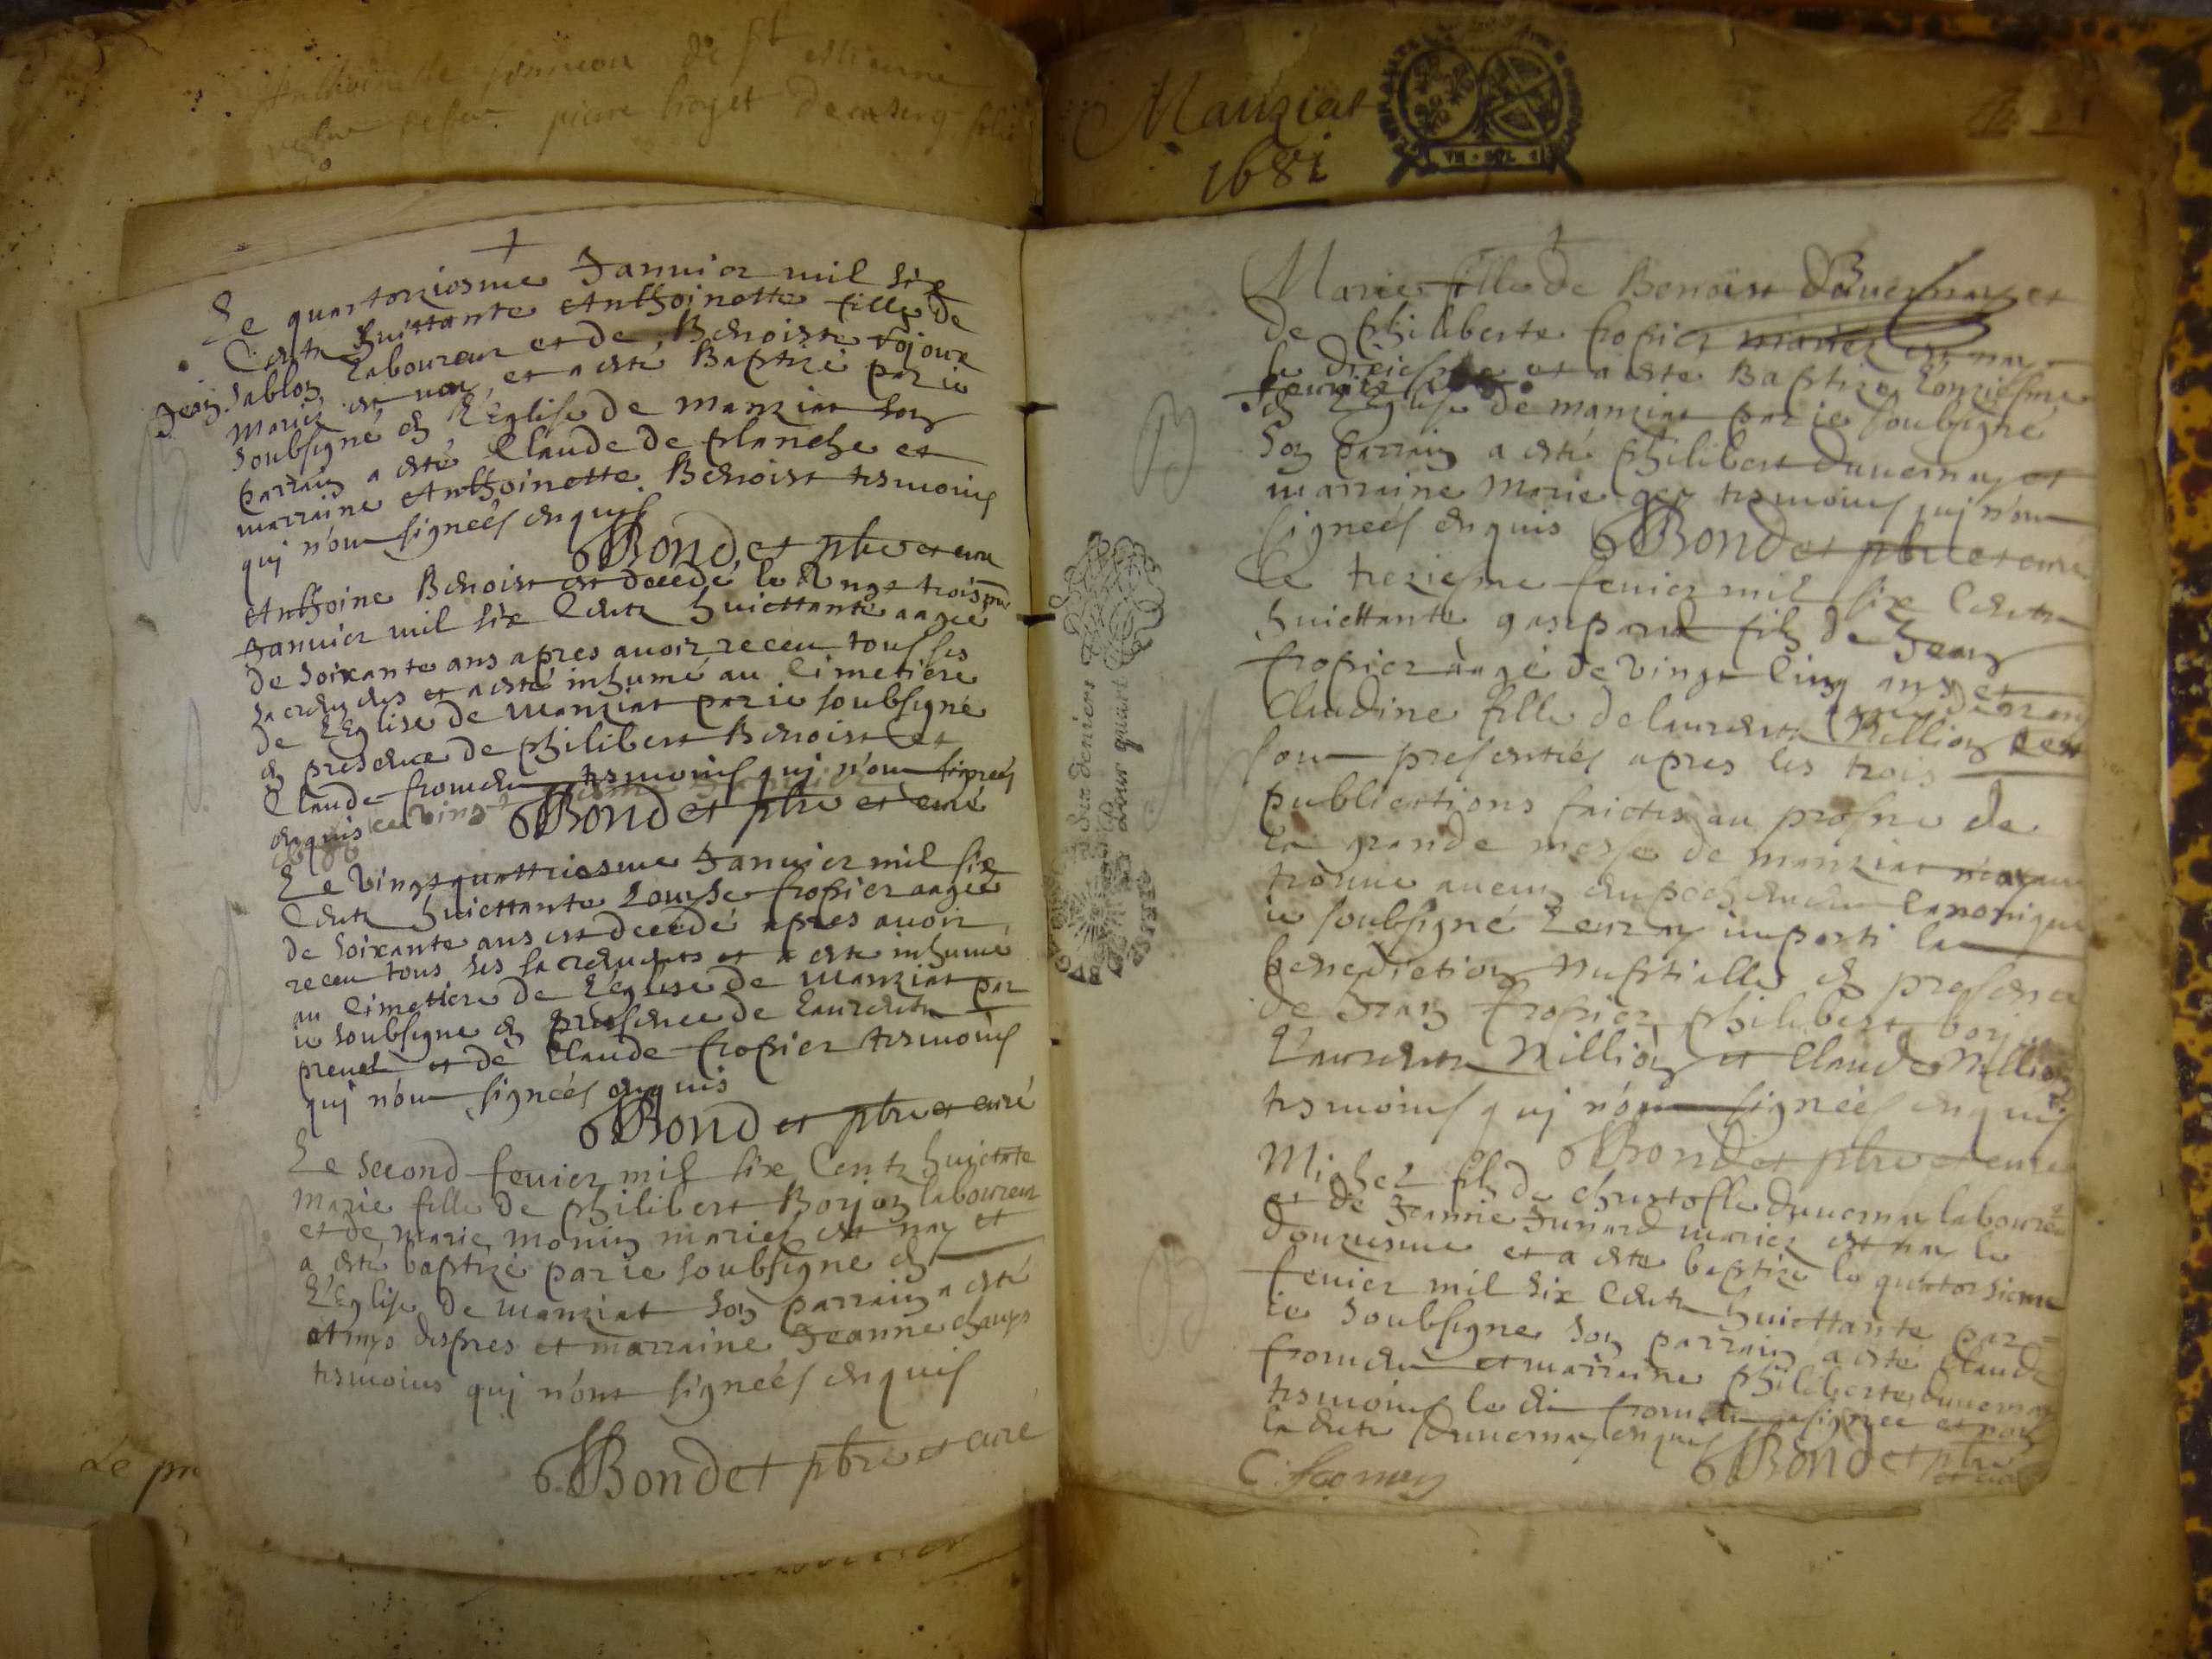 de st estienne
piere
Mauziat
1681
VN · SOL
Le quatorziesme Januier mil six
Centz huittante Anthoinette fille de
Jean Sablon Laboureur et de Benoiste Vojoux
mariez est nay et a esté Baptizé par ie
soubsigné en l'Eglise de manziat son
parrain a esté Claude de planche et
marraine Anthoinette Benoist tesmoins
quj n'ont signeés enquis
Bondet pbre et curé
Anthoine Benoist est decedé le vingt trois
Januier mil six Centz huiettante aagé
de soixante ans apres auoir receu tous ses
sacremens et a esté inhumé au Cimetiere
de l'Eglise de manziat par ie soubsigné
en presence de philibert Benoist et
Claude froment tesmoins quj n'ont signeés
enquis
Bondet pbre et curé
Le vingt quattriesme Januier mil six
Centz huiettante Louyse fropier aageé
de soixante ans est decedé apres auoir
receu tous ses sacrements et a esté inhumé
au Cimetiere de l'eglise de manziat par
ie soubsigné en presence de Laurent
preuel et de Claude fropier tesmoins
quj n'ont signeés enquis
Bondet pbre et curé
Le second feurier mil six Centz huictate
marie fille de philibert Borjon laboureur
et de marie monin mariés est nay et
a esté baptizé par ie soubsigné en
l'Eglise de manziat son parrain a esté
despres et marraine Jeanne
tesmoins quj n'ont signeés enquis
Bondet pbre et curé
Le pr
Six deniers
Pour quart
Marie fille de Benoist Duuernay et
de philiberte fropier mariez est nay
le et a esté Baptizé l'onziesme
feurier
en l'Eglise de manziat par ie soubsigné
son parrain a esté philibert duuernay et
marraine Marie tesmoins quj n'ont
signeés enquis Bondet pbre et curé
Le treziesme feurier mil six Centz
huiettante gaspard filz de Jean
fropier aagé de vingt Cinq ans et
Claudine fille de laurent Million
sont presentés apres les trois
publications faictes au prosne de
la grande messe de manziat n'ayant
trouué aucun empeschement Canonique
ie soubsigné Leur ay imparti la
benediction nuptialle en presence
de Jean fropier philibert borjon
Laurent Million et Claude Million
tesmoins quj n'ont signeés enquis
Bondet pbre et curé
Michel filz de christofle duuernay laboureur
et de Jeanne Junard mariez est nay le
douziesme et a esté baptizé le quatorsiesme
feurier mil six Centz huiettante par
ie soubsigné son parrain a esté Claude
froment et marraine philiberte duuernay
tesmoins le dit froment a signeé et non
la dite duuernay enquis Bondet pbre
et curé
C. froment